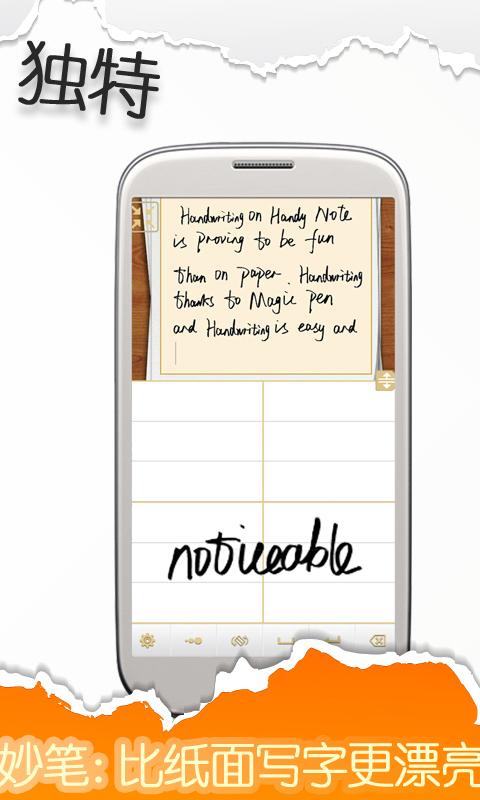 独特
Handwriting on Handy Note
is proving to be fun
than on paper. Handwriting
thanks to Magic pen
and Handwriting is easy and
noticeable
妙笔:比纸面写字更漂亮